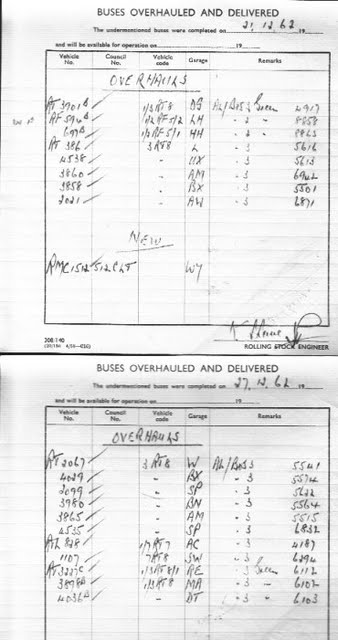 BUSES OVERHAULED AND DELIVERED
The undermentioned buses were completed on 21.12.62 19
and will be available for operation on 19
Vehicle No. Council No. Vehicle code Garage Remarks
OVERHAULS
RT 3701B 1/3 RT8 DG Green 4917
RF 1/2 RF5/2 LH " 3 " 8858
697B 1/2 RF5/1 HH " 3 " 8863
RT 386 3 RT8 L " 3 5616
4538 " UX " 3 5613
3860 " AM " 3 6942
3858 " BX " 3 5501
2021 " AW " 3 6871
NEW
RMC 1512 512 CLT WY
ROLLING STOCK ENGINEER
BUSES OVERHAULED AND DELIVERED
The undermentioned buses were completed on 27.12.62 19
and will be available for operation on 19
Vehicle No. Council No. Vehicle code Garage Remarks
OVERHAULS
RT 2067 3 RT8 W 5541
4029 " BX " 3 5574
2099 " SP " 3 5622
3980 " BN " 3 5564
3865 " AM " 3 5515
4535 " SP " 3 6832
RTL 828 1/7 RT7 AC " 3 4187
1107 7RT8 SW " 3 6294
RT 3227C 1/3 RT8/1 RE " 3 Green 6112
3898B 1/3 RT8 MA " 3 " 6102
4036B " DT " 3 6103